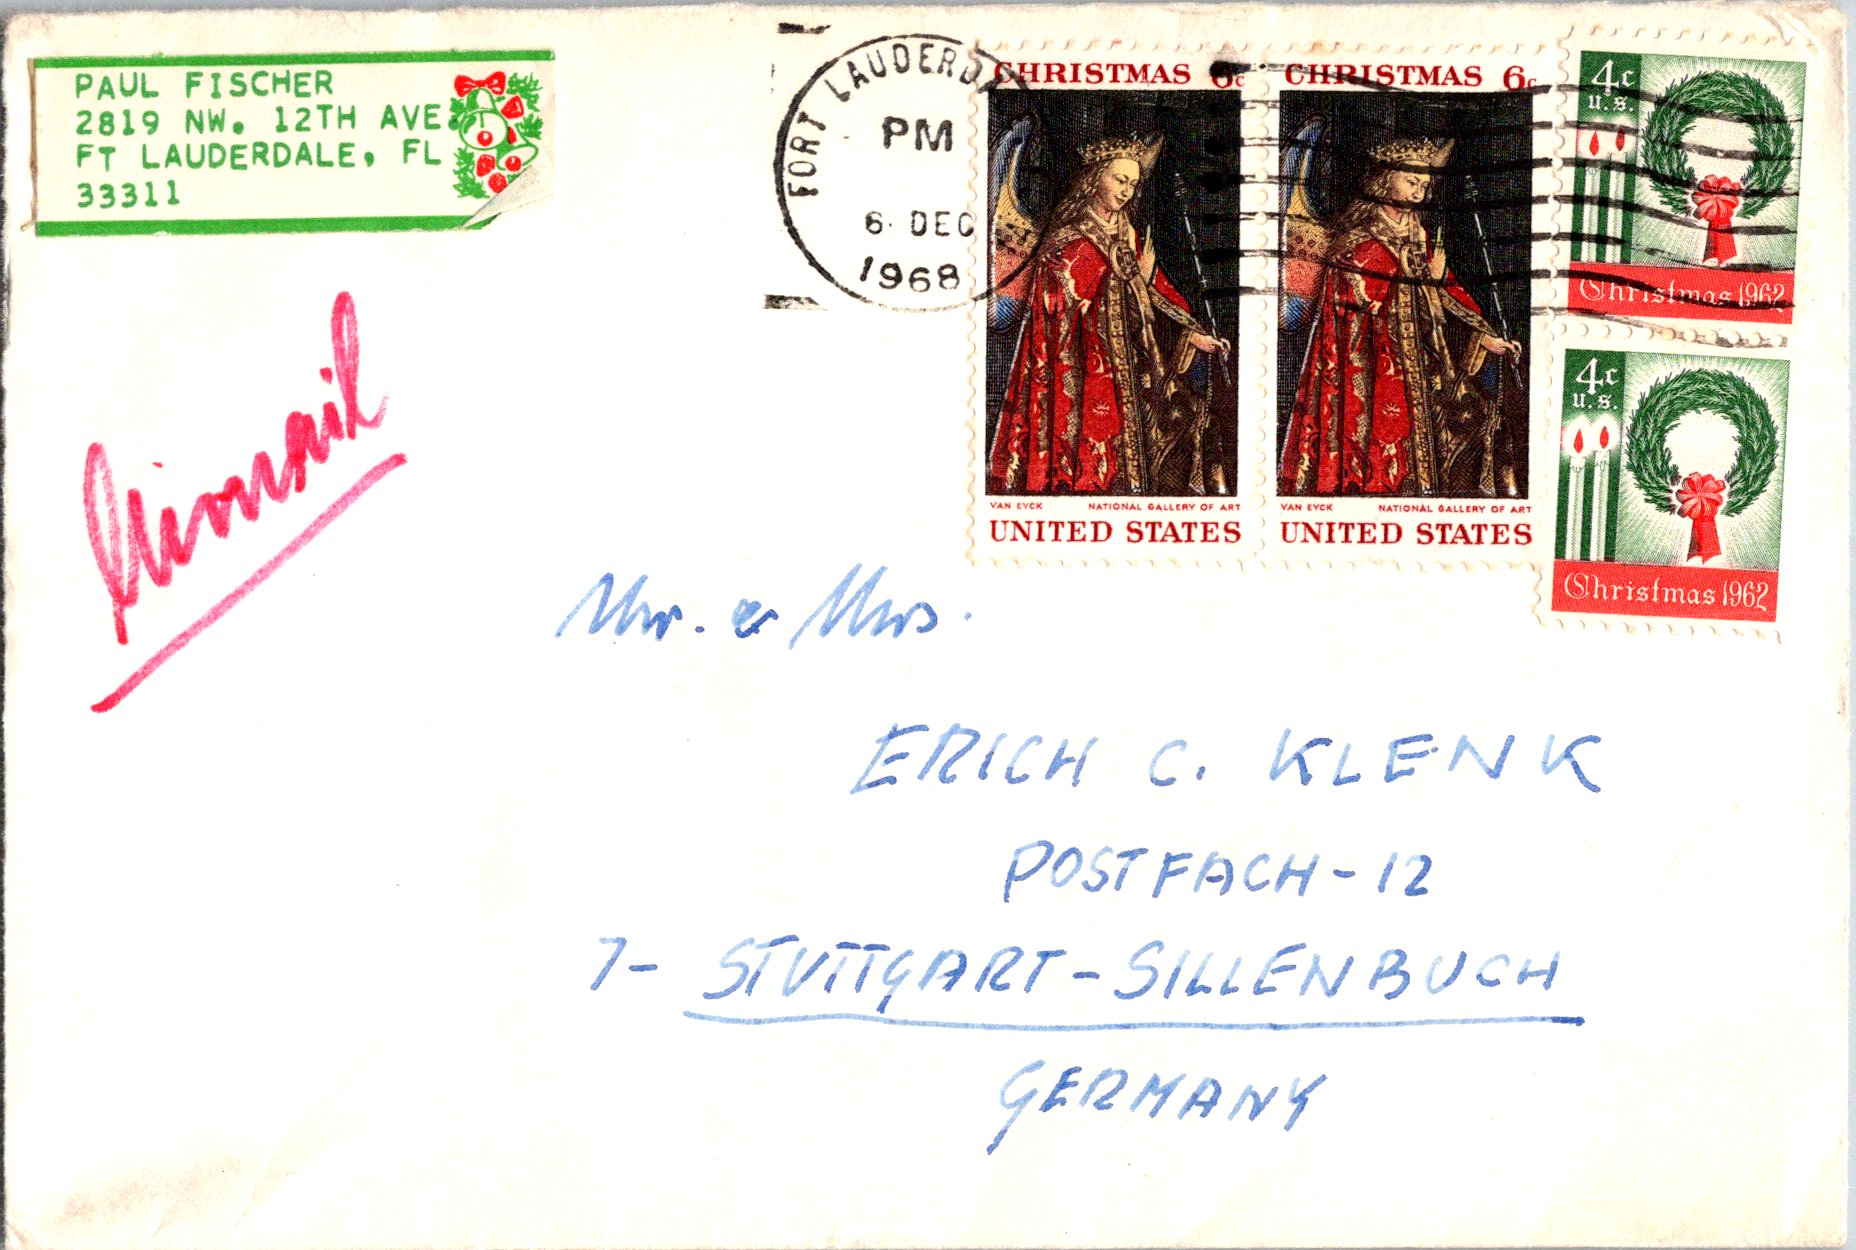 PAUL FISCHER
2819 NW. 12TH AVE.
FT LAUDERDALE, FL
33311
FORT LAUDERD
PM
6 DEC
1968
CHRISTMAS 6c
VAN EYCK NATIONAL GALLERY OF ART
UNITED STATES
CHRISTMAS 6c
VAN EYCK NATIONAL GALLERY OF ART
UNITED STATES
4c
U.S.
Christmas 1962
4c
U.S.
Christmas 1962
Airmail
Mr. & Mrs.
ERICH C. KLENK
POSTFACH-12
7- STUTTGART-SILLENBUCH
GERMANY